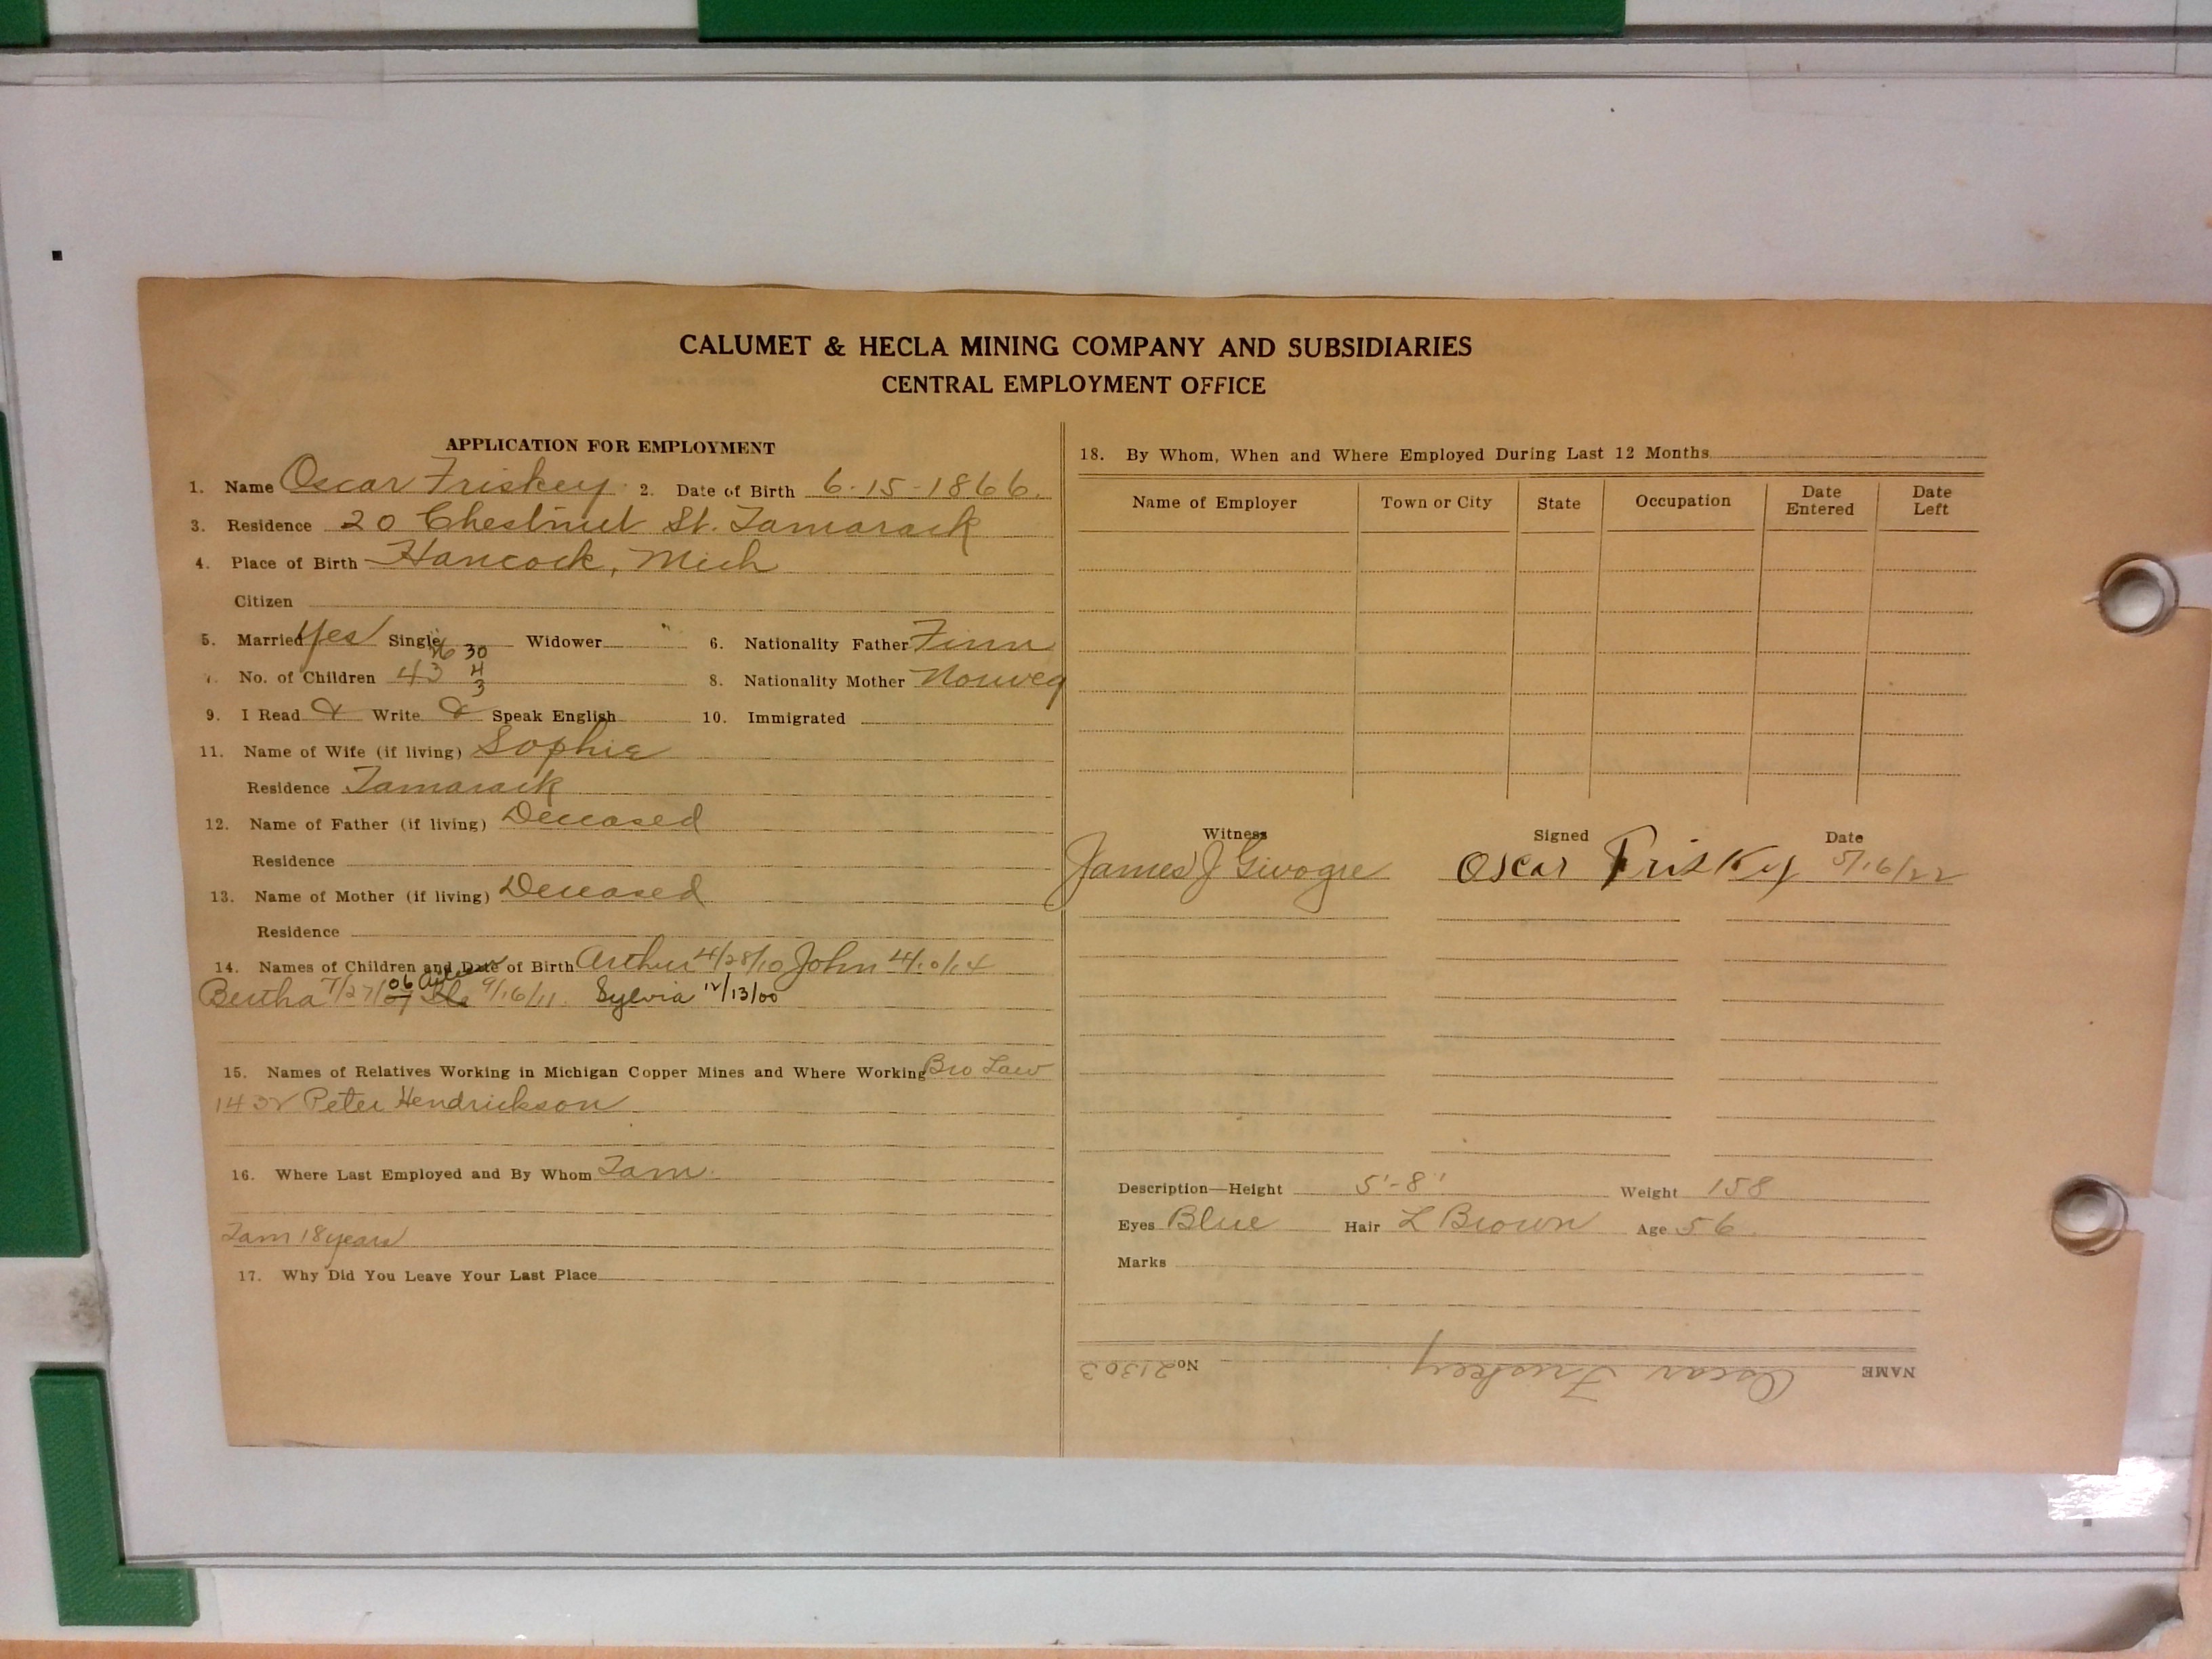 CALUMET & HECLA MINING COMPANY AND SUBSIDIARIES
CENTRAL EMPLOYMENT OFFICE
APPLICATION FOR EMPLOYMENT
1. Name Oscar Friskey 2. Date of Birth 6-15-1866.
3. Residence 20 Chestnut St. Tamarack
4. Place of Birth Hancock, Mich
Citizen
5. Married Yes Single Widower 6. Nationality Father Finn
30
7. No. of Children 43 4 8. Nationality Mother Norweg
3
9. I Read & Write & Speak English 10. Immigrated
11. Name of Wife (if living) Sophie
Residence Tamarack
12. Name of Father (if living) Deceased
Residence
13. Name of Mother (if living) Deceased
Residence
14. Names of Children and Date of Birth Arthur 4/28/10 John 4/10/14
Bertha 7/27/06 9/16/11. Sylvia 12/13/00
15. Names of Relatives Working in Michigan Copper Mines and Where Working Bro Law
Peter Hendrickson
16. Where Last Employed and By Whom Tam.
Tam 18 years
17. Why Did You Leave Your Last Place
18. By Whom, When and Where Employed During Last 12 Months
Name of Employer Town or City State Occupation Date Entered Date Left
Witness Signed Date
James J Givogre Oscar Friskey 5/16/22
Description—Height 5'-8" Weight 158
Eyes Blue Hair L Brown Age 56
Marks
NAME Oscar Friskey No 21303